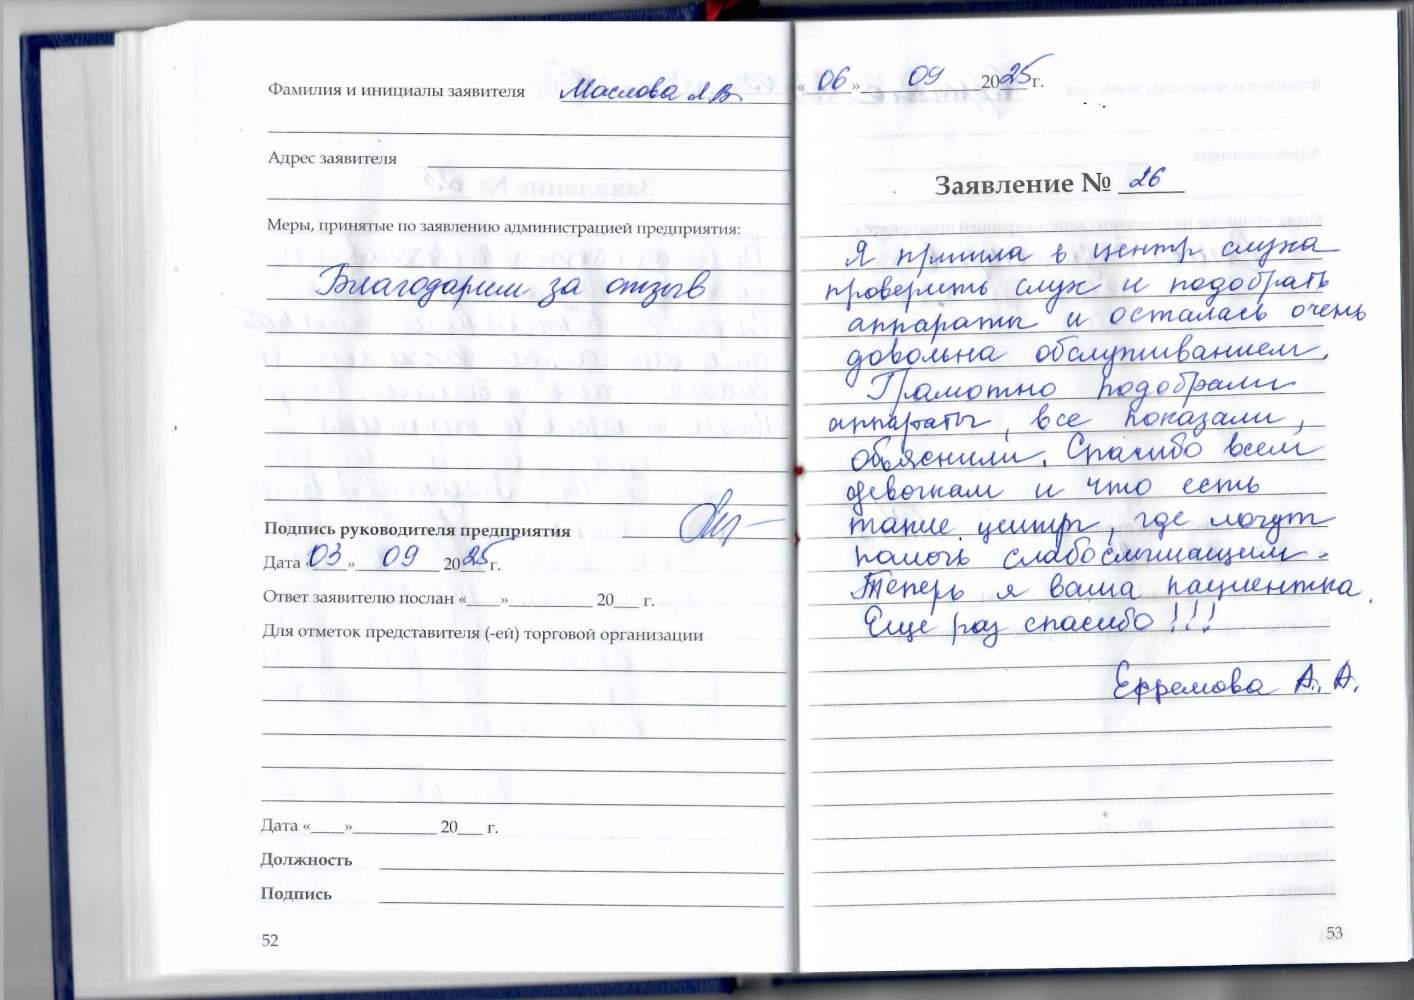 Фамилия и инициалы заявителя Маслова Л.В.
Адрес заявителя
Меры, принятые по заявлению администрацией предприятия:
Благодарим за отзыв
Подпись руководителя предприятия
Дата «03» 09 2025 г.
Ответ заявителю послан «____»__________ 20___ г.
Для отметок представителя (-ей) торговой организации
Дата «____»__________ 20___ г.
Должность
Подпись
52
«06» 09 2025 г.
Заявление № 26
Я пришла в центр слуха
проверить слух и подобрать
аппараты и осталась очень
довольна обслуживанием.
Грамотно подобрали
аппараты, все показали,
объяснили. Спасибо всем
девочкам и что есть
такие центры, где могут
помочь слабослышащим.
Теперь я ваша пациентка.
Еще раз спасибо!!!
Ефремова А.А.
53